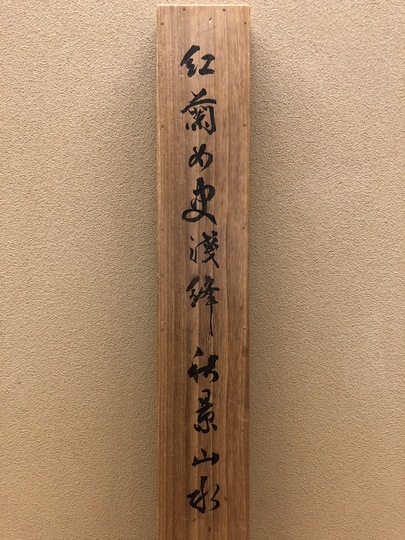 紅蘭女史淺絳秋景山水